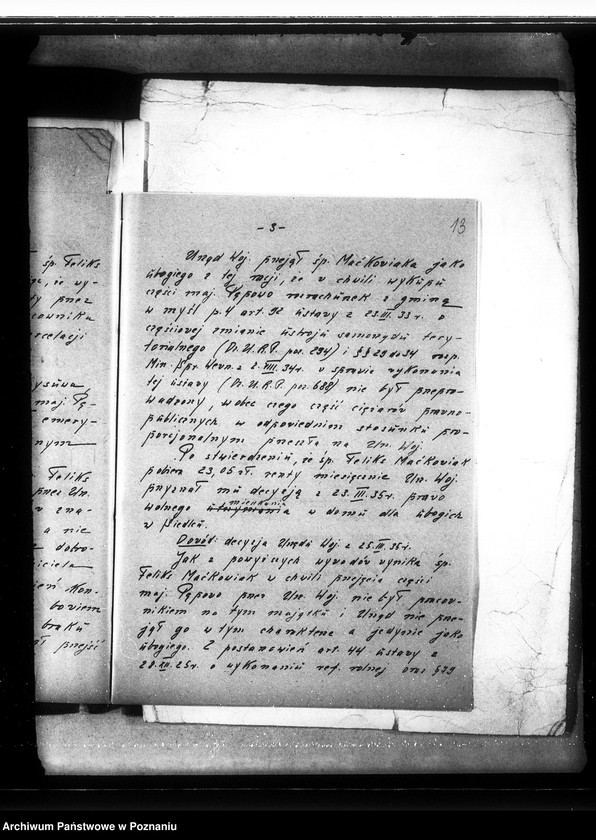 śp. Feliks
że wy-
przez
parcelacji
maj. Pę-
emery-
nym
Feliks
przez Urz.
a nie
dobro-
bowiem
braku
przejść
-3-
13
Urząd Woj. przejął śp. Maćkowiaka jako
ubogiego z tej racji, że w chwili wykupu
części maj. Pępowo rozrachunek z gminą
w myśl p. 4 art. 92 ustawy z 23.III.33 r. o
częściowej zmianie ustroju samorządu tery-
torialnego (Dz. U.R.P. poz. 294) i §§ 29 do 34 rozp.
Min. Spr. Wewn. z 2.VIII.34r. w sprawie wykonania
tej ustawy (Dz. U.R.P. poz. 688) nie był przepro-
wadzony, wobec czego część ciężarów prawno-
publicznych w odpowiednim stosunku pro-
porcjonalnym przeszła na Urz. Woj.
Po stwierdzeniu, że śp. Feliks Maćkowiak
pobiera 23,05 zł. renty miesięcznie Urz. Woj.
przyznał mu decyzją z 23.III.35r. prawo
mieszkania
wolnego w domu dla ubogich
w Siedlcu.
Dowód: decyzja Urzędu Woj. z 25.III.35r.
Jak z powyższych wywodów wynika śp.
Feliks Maćkowiak w chwili przejęcia części
maj. Pępowo przez Urz. Woj. nie był pracow-
nikiem na tym majątku i Urząd nie prze-
jął go w tym charakterze a jedynie jako
ubogiego. Z postanowień art. 44 ustawy z
28.XII.25r. o wykonaniu ref. rolnej oraz § 39
Archiwum Państwowe w Poznaniu